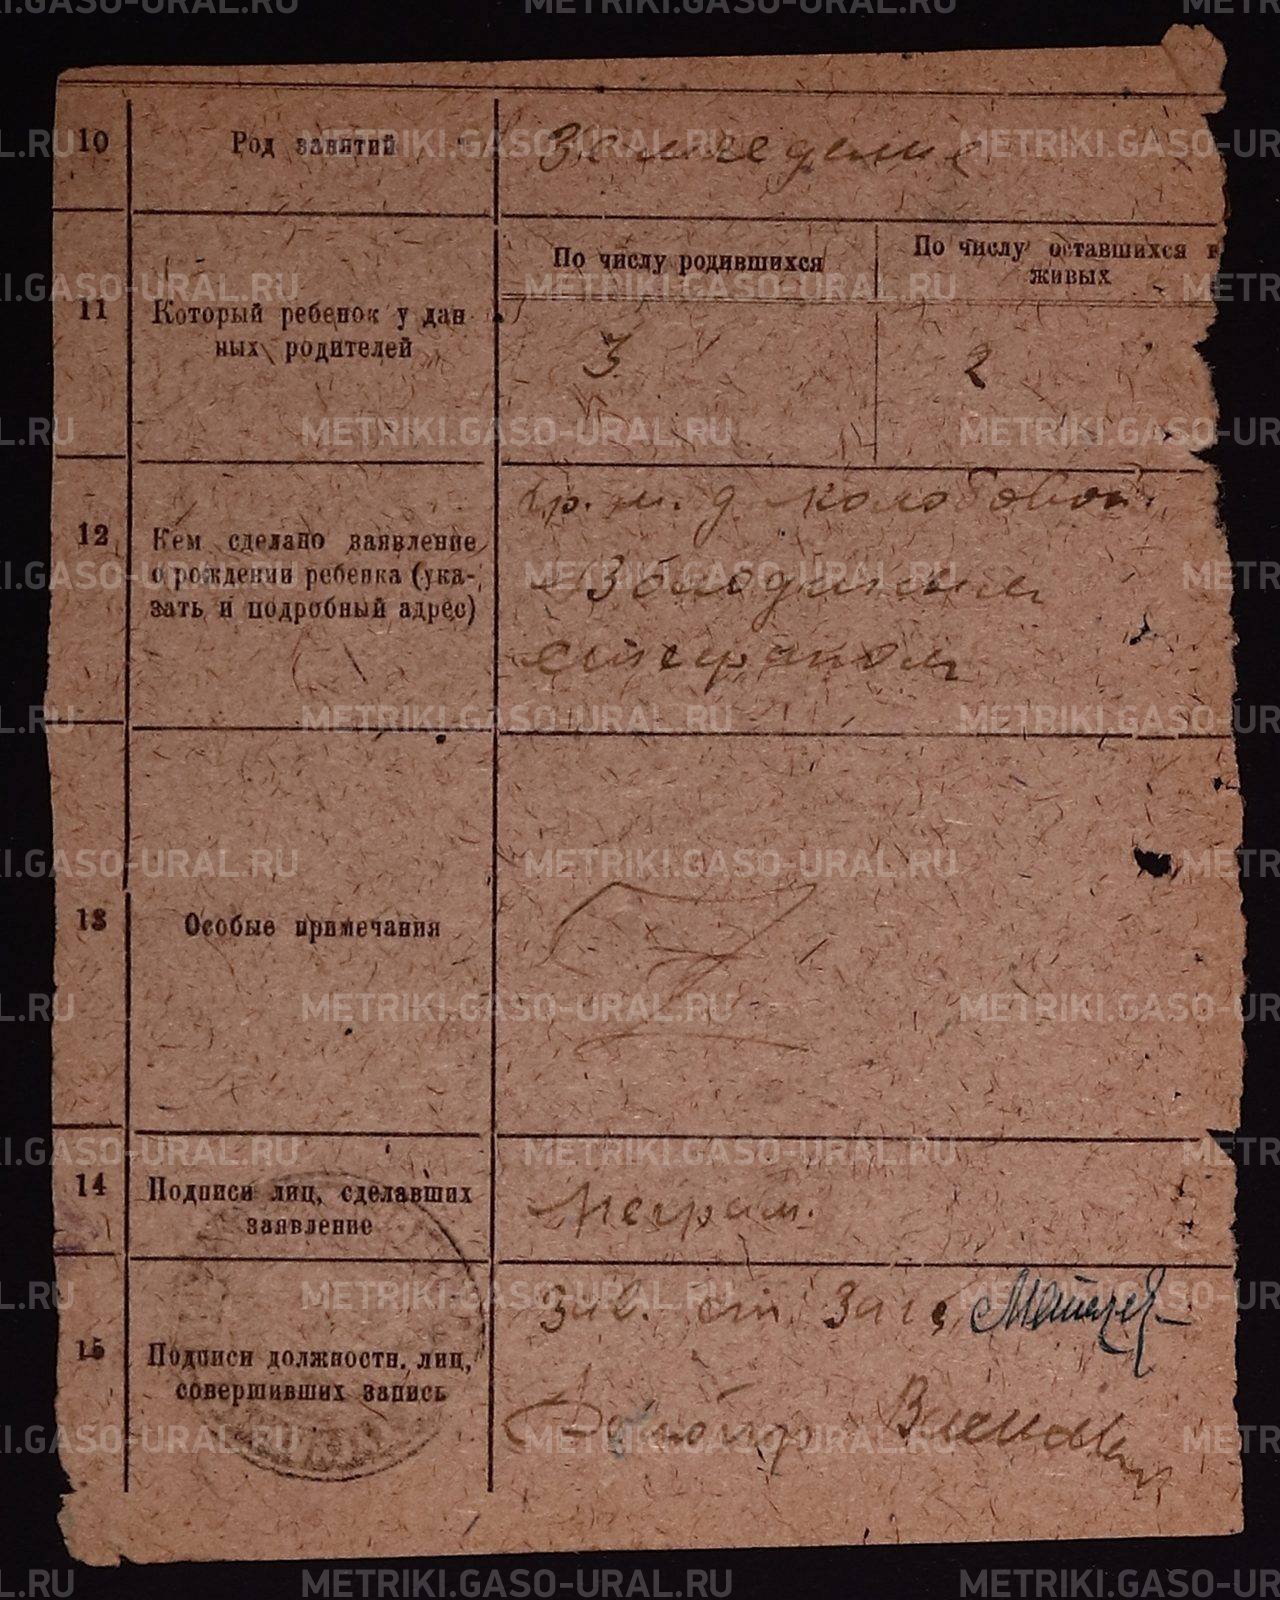 10 Род занятий Земледелие
11 Который ребенок у дан
ных родителей
По числу родившихся
По числу оставшихся в
живых
3 2
12 Кем сделано заявление
о рождении ребенка (ука-
зать и подробный адрес)
гр. н. д Колобовой.
Степаном
13 Особые примечания
14 Подписи лиц, сделавших
заявление
Неграм.
15 Подписи должностн. лиц,
совершивших запись
Зав. ст Загс
METRIKI.GASO-URAL.RU